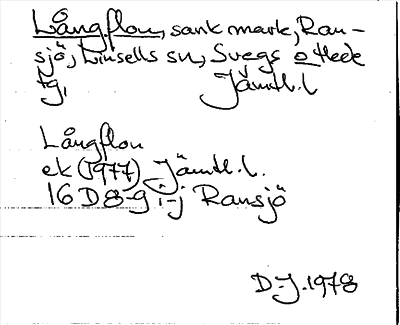 Långflon, sank mark, Ran-
sjö, Linsells sn, Svegs o Hede
tg, Jämtl. l
Långflon
ek (1977) Jämtl. l.
16 D 8-9 i-j Ransjö
D-J. 1978